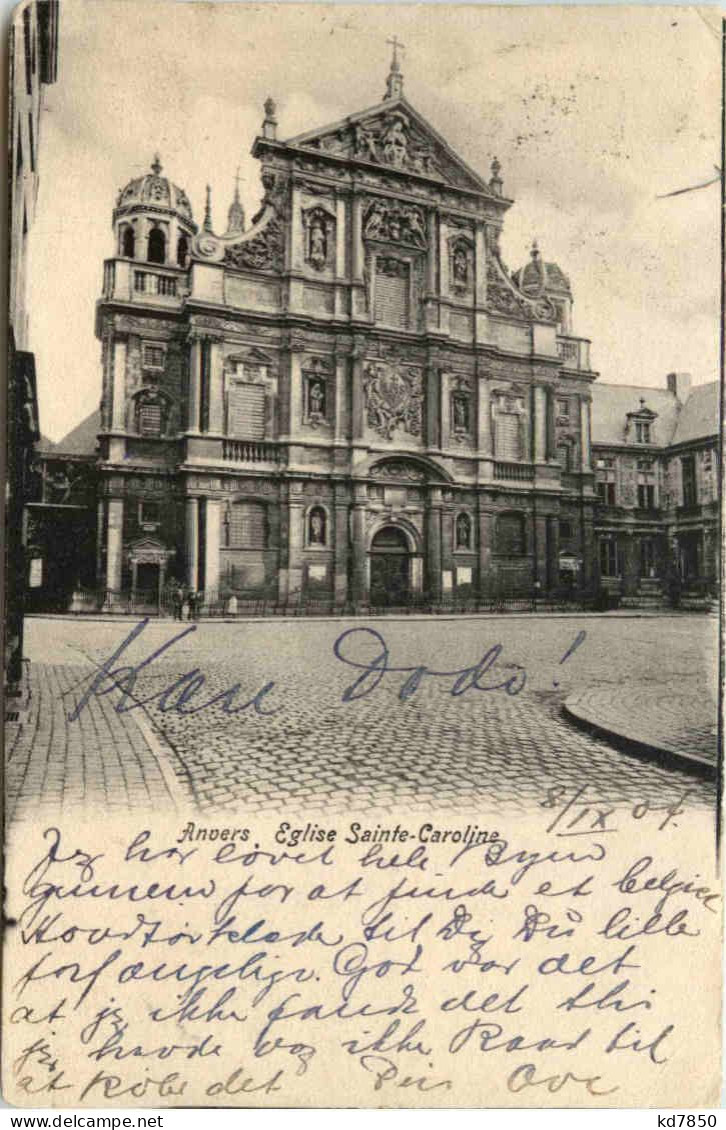 Kære Dodo!
Anvers Eglise Sainte-Caroline
8/IX 04.
Jeg har løvet hele Byen
gunnem for at finde et belgisk
Hovdtørklæde til Dig Du lille
forfængelige. Godt var det
at jeg ikke fandt det thi
jeg havde vox ikke Raad til
at købe det Din Ove
kd7850